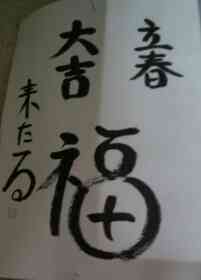 立春
大吉
福
来たる